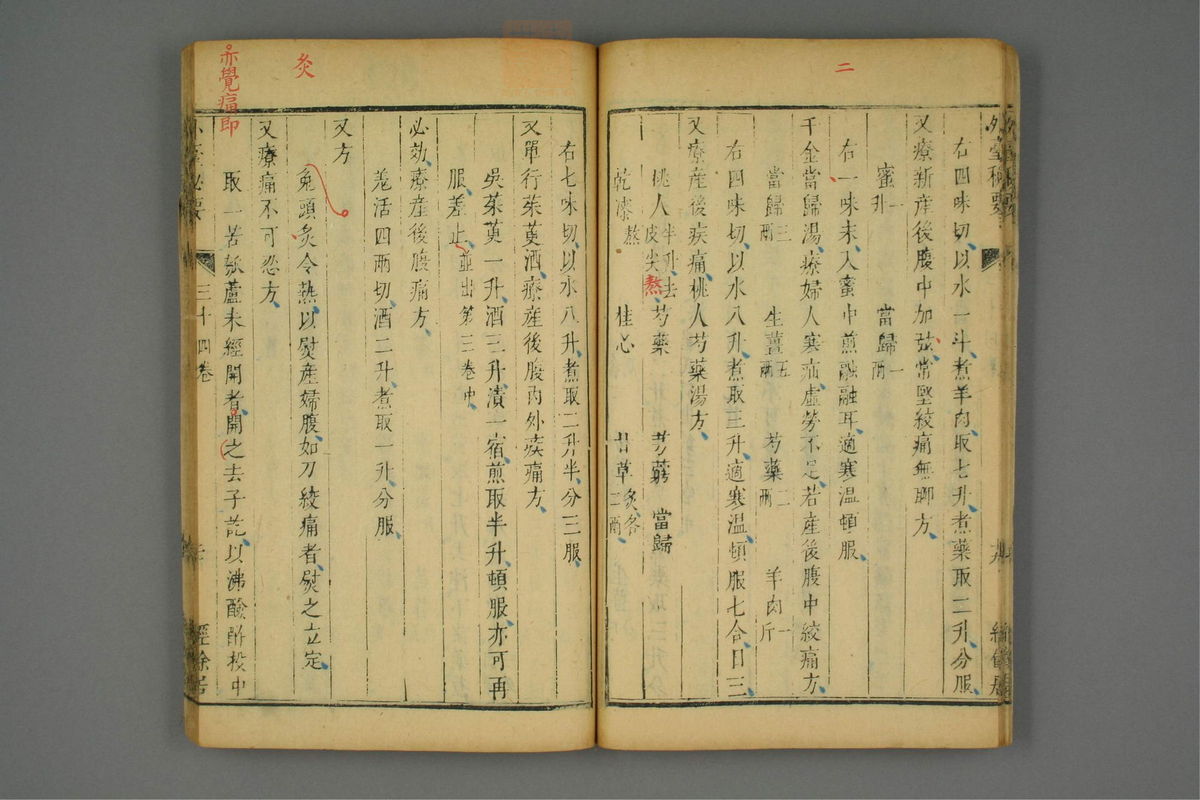 二
右四味切以水一斗煮羊肉取七升煮藥取二升分服
又療新産後腹中加弦常堅絞痛無聊方
蜜一升 當歸一兩
右一味末入蜜中煎融融耳適寒温頓服
千金當歸湯療婦人寒疝虛勞不足若産後腹中絞痛方
當歸三兩 生薑五兩 芍藥二兩 羊肉一斤
右四味切以水八升煮取三升適寒温頓服七合日三
又療産後疾痛桃人芍藥湯方
桃人半升去皮尖熬 芍藥 芎藭 當歸
乾漆熬 桂心 甘草炙各二兩
炙
赤覺痛即
右七味切以水八升煮取二升半分三服
又單行茱萸酒療産後腹內外疾痛方
吳茱萸一升酒三升漬一宿煎取半升頓服亦可再
服差止並出第三卷中
必効療産後腹痛方
羗活四兩切酒二升煮取一升分服
又方
兔頭炙令熱以熨産婦腹如刀絞痛者熨之立定
又療痛不可忍方
取一苦瓠蘆未經開者開之去子訖以沸醶酢投中
三十四卷
經餘居